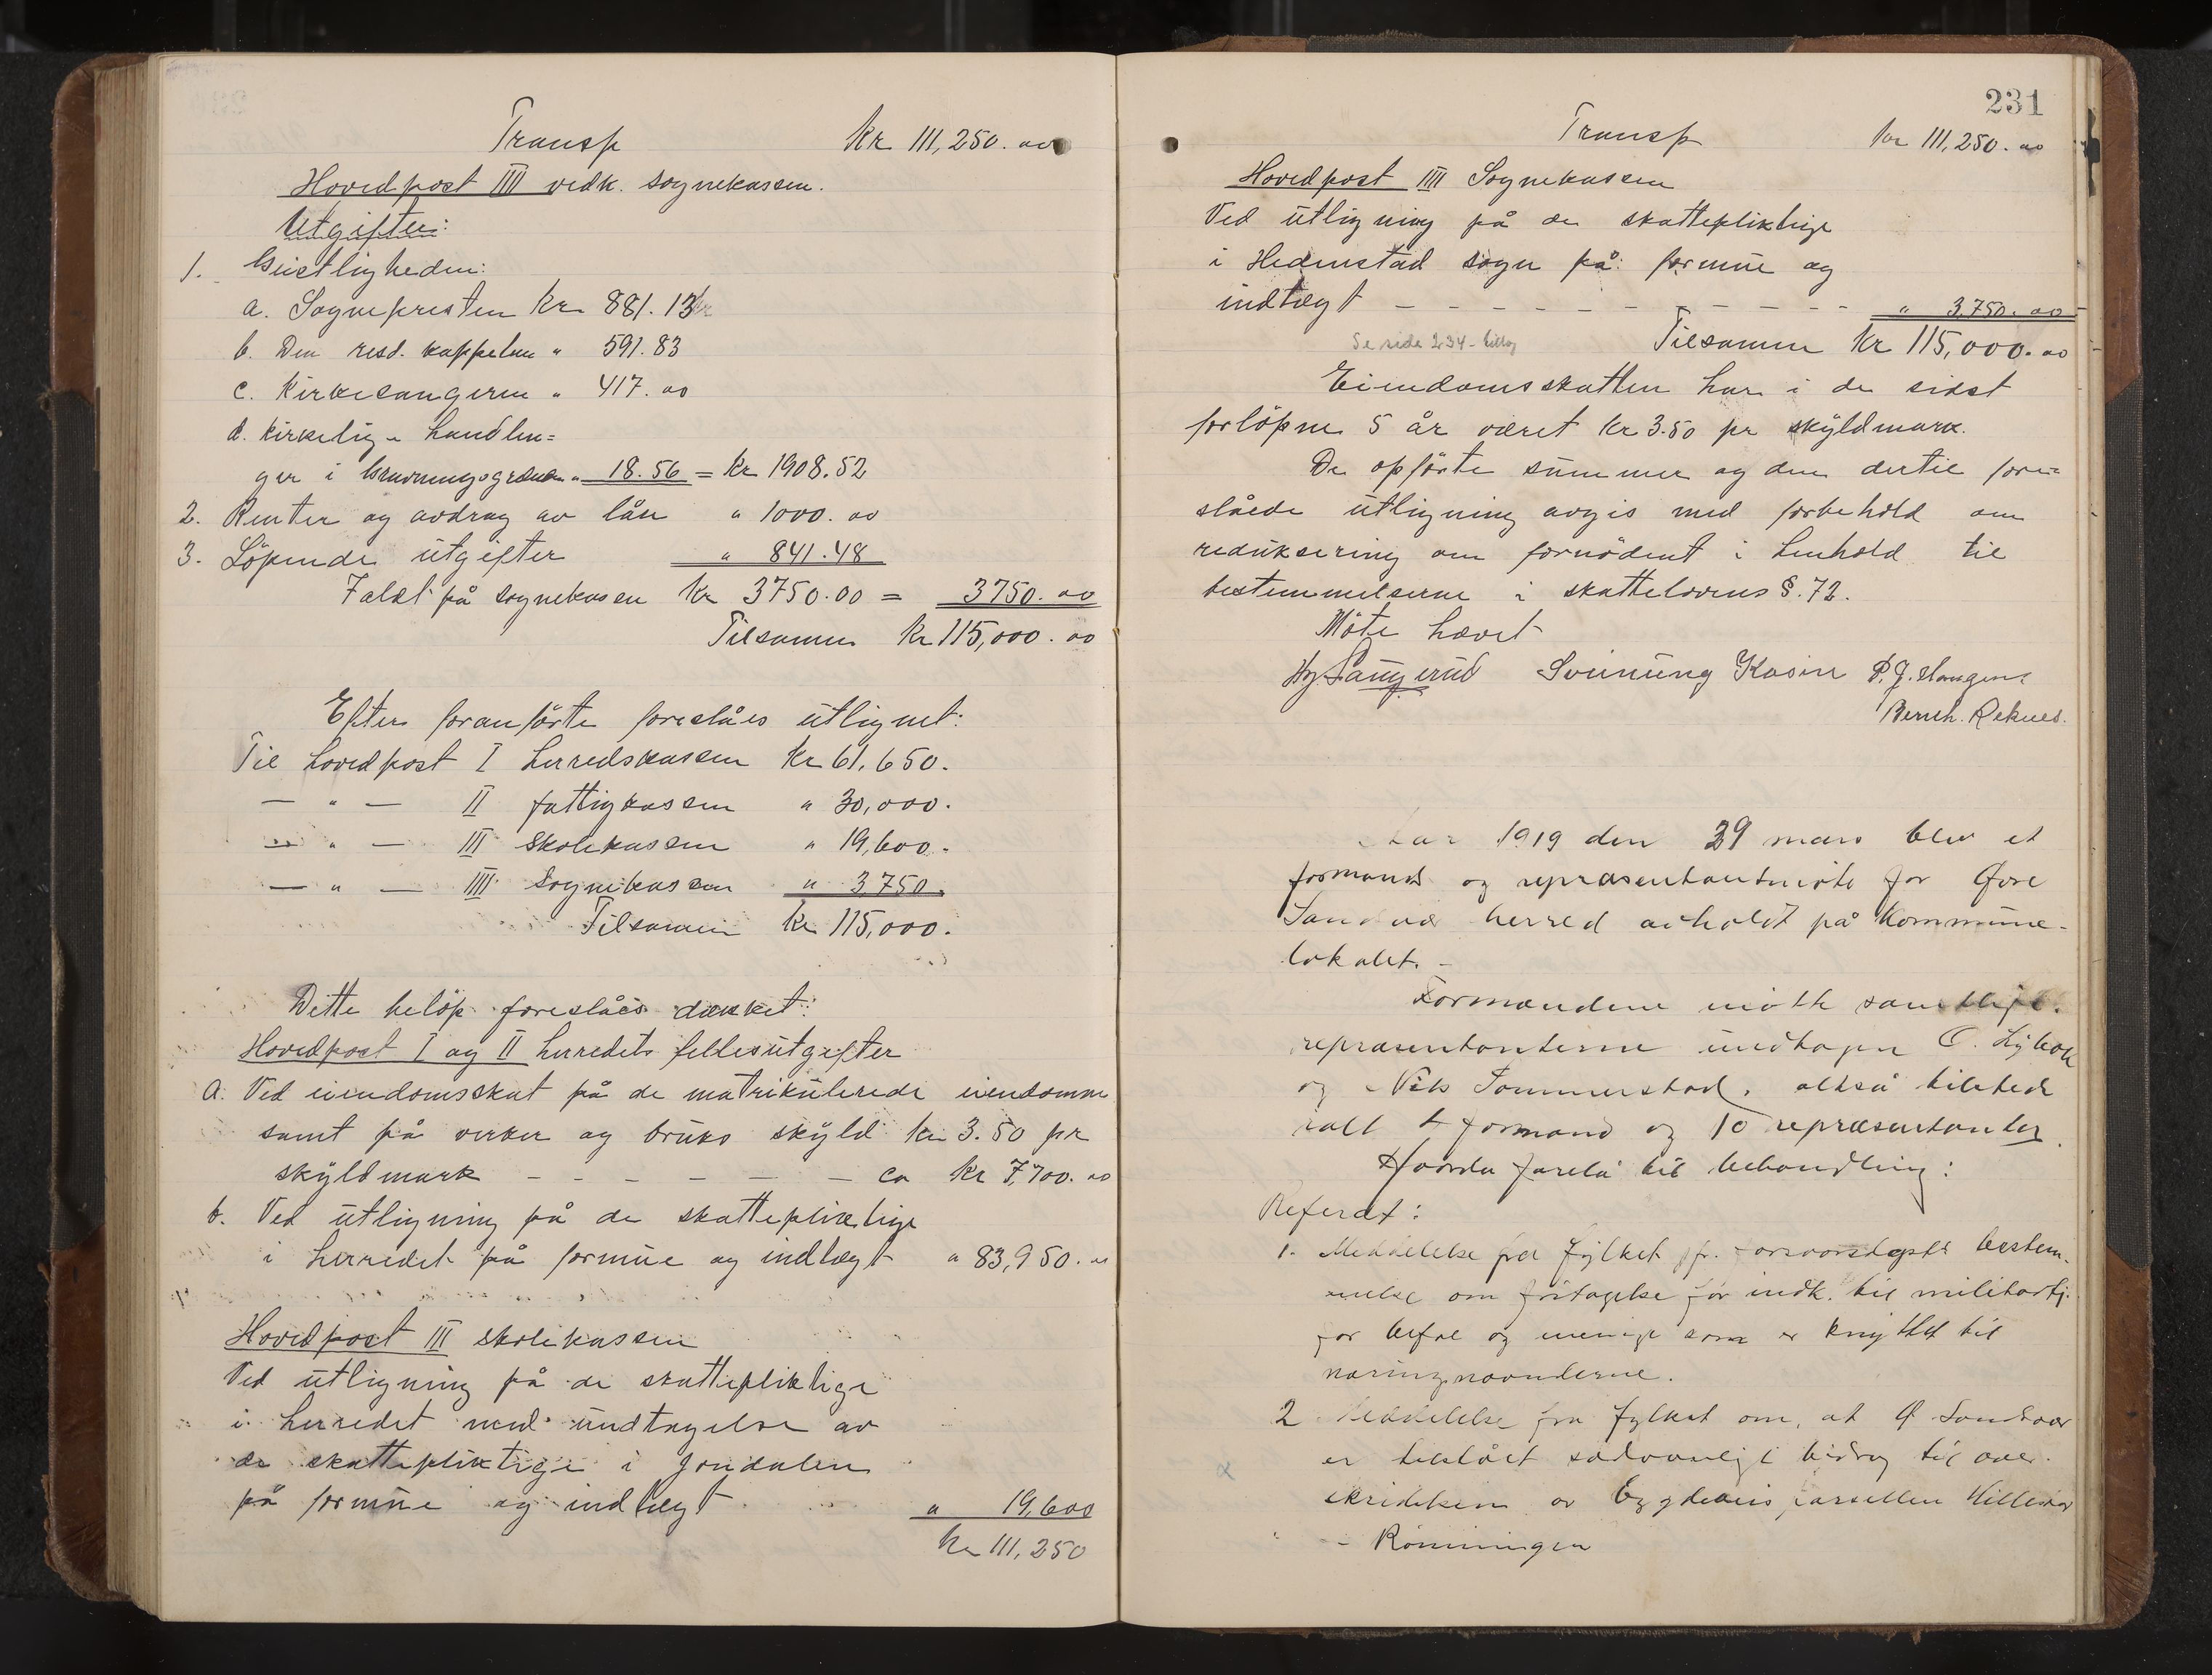 Transp Kr 111,250.00
Hovedpost IIII vedk. sognekassen.
Utgifter:
1. Geistligheden:
a. Sognepresten Kr 881.13
b. Den resd. kappelan " 591.83
c. Kirkesangeren " 417.00
d. Kirkelige handlin=
ger i " 18.56 = Kr 1908.52
2. Renter og avdrag av lån " 1000.00
3. Löpende utgifter " 841.48
Ialdt på sognekassen Kr 3750.00 = 3750.00
Tilsammen Kr 115,000.00
Efter foranförte foreslåes utlignet:
Til hovedpost I herredskassen Kr 61,650.
— " — II fattigkassen " 30,000.
— " — III Skolekassen " 19,600.
— " — IIII Sognekassen " 3,750.
Tilsammen Kr 115,000.
Dette belöp foreslåes dækket:
Hovedpost I og II herredets fellesutgifter
a. Ved eiendomsskat på de matrikulerede eiendomme
samt på verker og bruks skyld Kr 3.50 pr
skyldmark - - - - - - ca Kr 7,700.00
b. Ved utligning på de skattepliktige
i herredet på formue og indtægt " 83,950.00
Hovedpost III skolekassen
Ved utligning på de skattepliktige
i herredet med undtagelse av
de skattepliktige i Jondalen
på formue og indtægt " 19,600
Kr 111,250
231
Transp Kr 111,250.00
Hovedpost IIII Sognekassen
Ved utligning på de skattepliktige
i Hedenstad sogn på formue og
indtægt - - - - - - - - - - " 3,750.00
Se side 234 -
Tilsammen Kr 115,000.00
Eiendomsskatten har i de sidst
forlöpne 5 år været Kr 3.50 pr skyldmark.
De opförte summer og den dertil fore=
slåede utligning avgis med forbehold om
reduksering om fornödent i henhold til
bestemmelserne i skattelovens §.72.
Möte hævet
Hg. Langerud Sveinung Kasin P.J. Haugen
Bernh. Reknes.
Aar 1919 den 29 mars blev et
formands og repræsentantmöte for Øvre
Sandsvær herred avholdt på Kommune-
lokalet. -
Formændene mötte samtlige.
repræsentanterne undtagen O.
og Nils Sommerstad, altså tilstede
ialt 4 formænd og 10 repræsentanter.
Hvorda forelå til behandling:
Referat:
1. Meddelelse fra fylket fr. bestem-
melse om fritagelse for indk. til militærtj.
for befal og menige som er knyttet til
næringsnævnderne.
2. Meddelelse fra fylket om, at Ø Sandsvær
er tilstået sædvanlige bidrag til over-
skridelsen av bygdeveis parsellen
- Rönningen